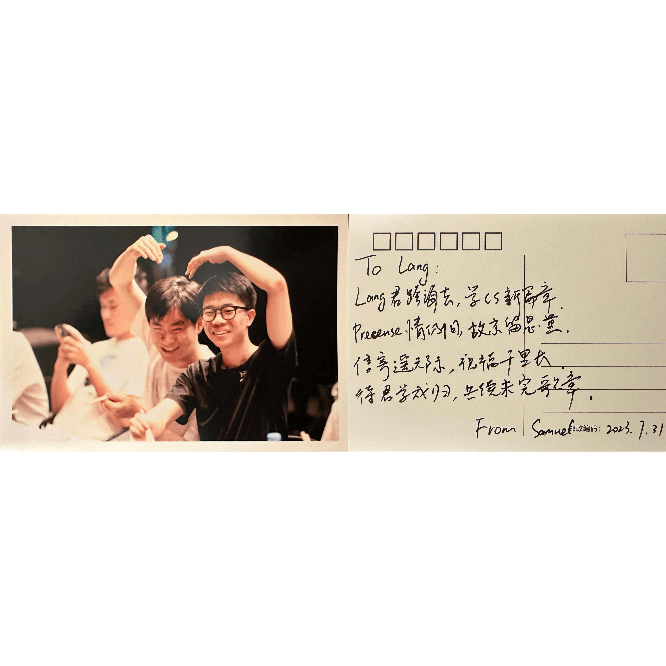 To Lang:
Lang君跨海去,学CS新篇章.
Precense情仍 故京留思
信寄遥天际,祝福千里长.
待君学成归,共续未完歌章.
From Samuel 2023.7.31